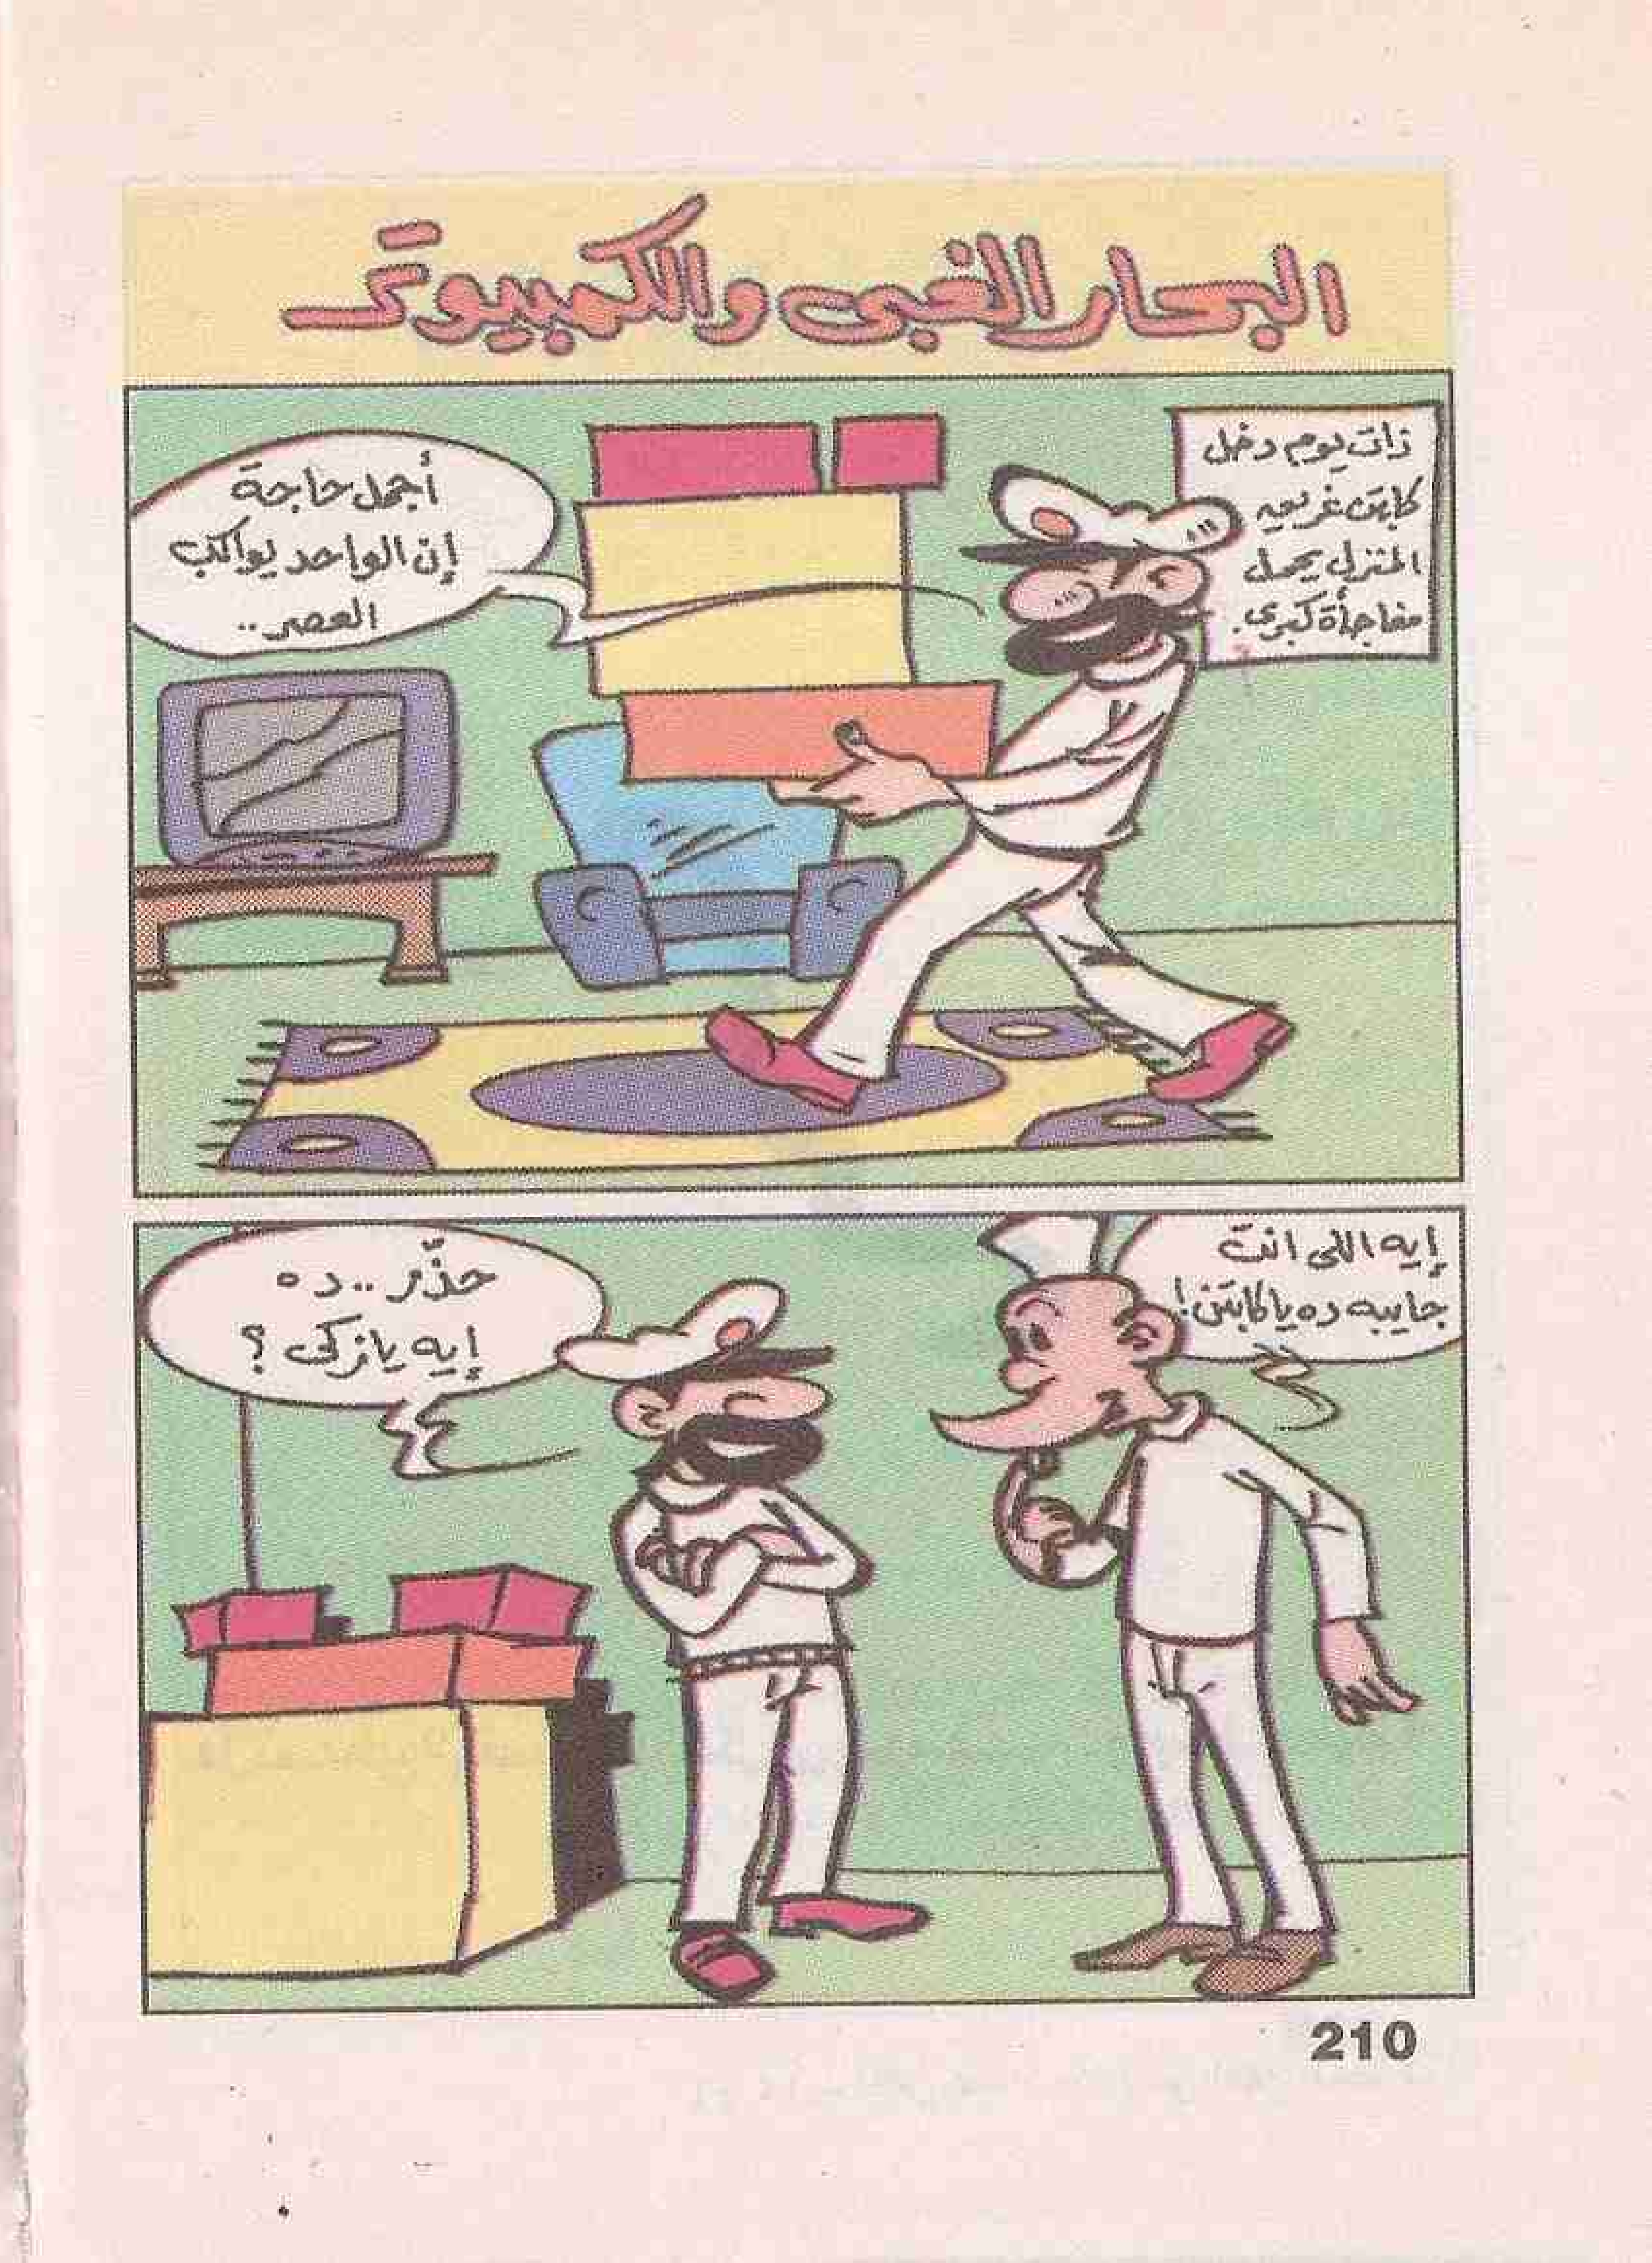 البحار الغبى والكمبيوتر
ذات يوم دخل
كابتن غريب
المنزل يحمل
مفاجأة كبرى.
أجمل حاجة
إن الواحد يواكب
العصر..
إيه اللى انت
جايبه ده يا كابتن!
حذّر .. ده
إيه يا زكى ؟
210